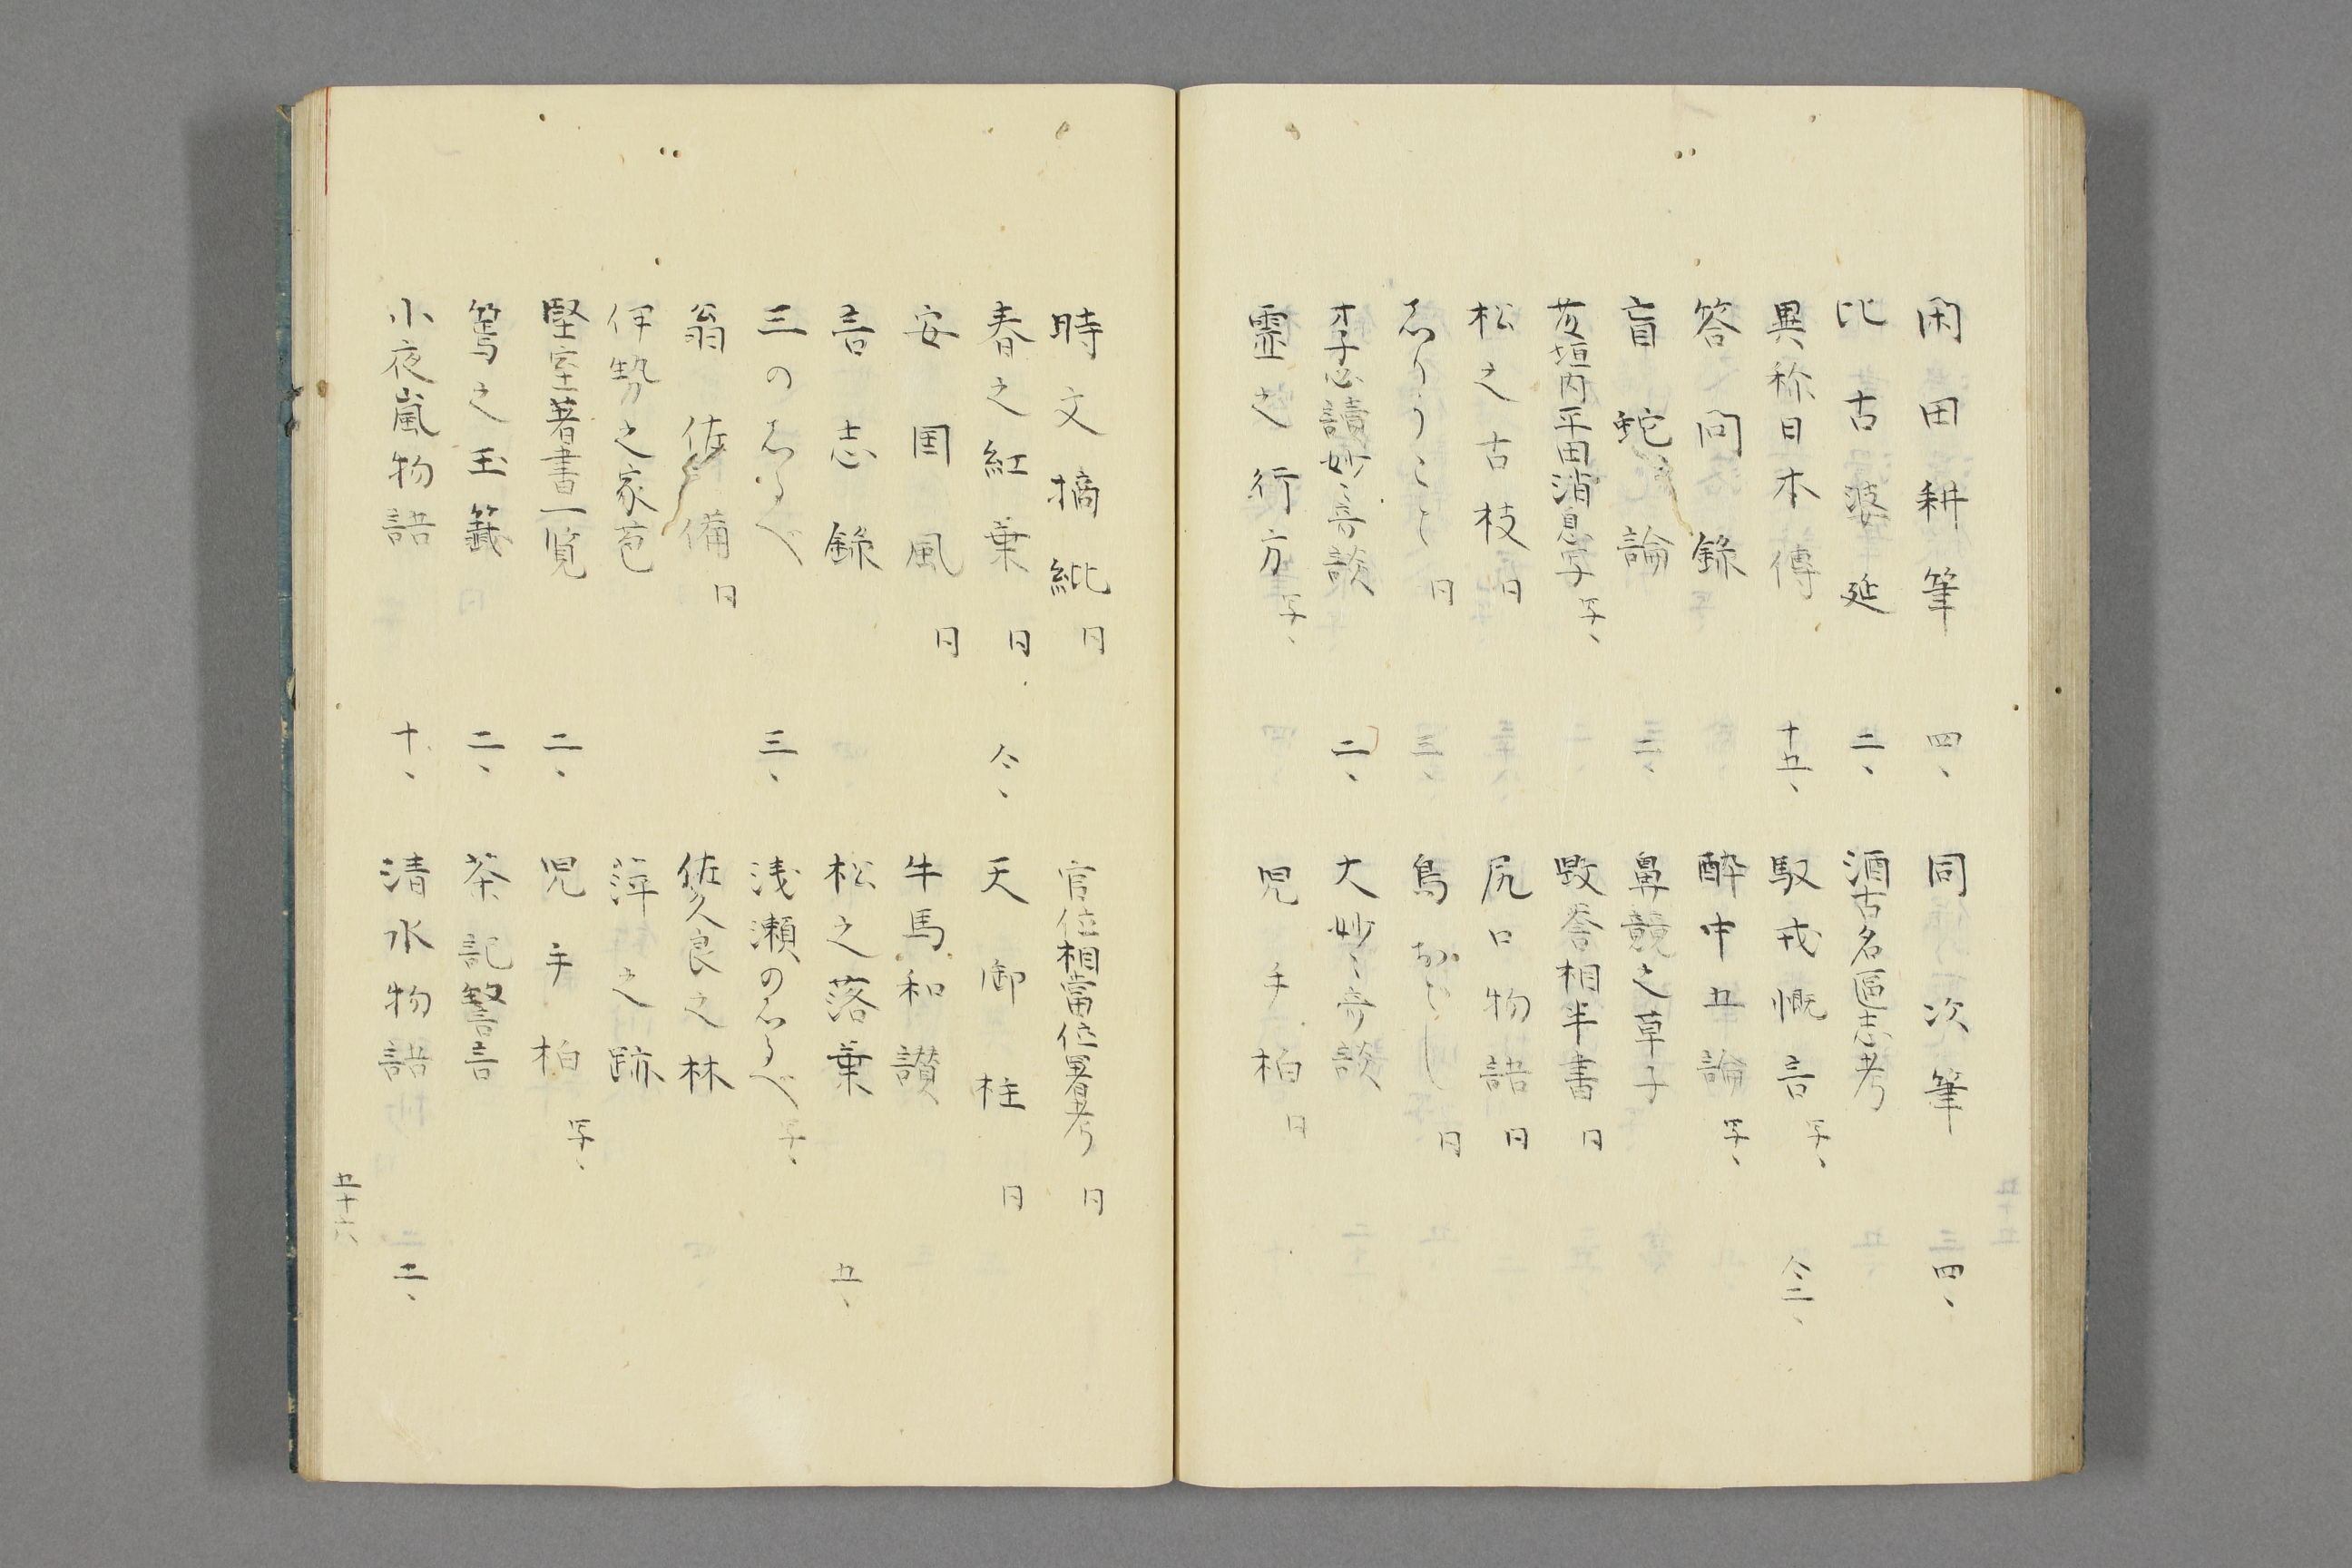 閑田耕筆 四、 同 次筆 四、
比古婆延 二、 酒古名區志考
異称日本傳 十五、 馭戎慨言 写、 仝二、
答問録 酔中五論 写、
盲蛇論 二、 鼻競之草子
茇垣内平田消息写 写、 毀誉相半書 日
松之古枝 日 尻口物語 日
志りうこと 日 鳥おどし 日
李子必讀妙々奇談 二、 大妙々奇談
霊之行方 写、 児手柏 日
時文摘紕 日 官位相當位署考 日
春之紅葉 日 仝、 天御柱 日
安国風 日 牛馬和讃
吾志録 松之落葉 五、
三のしるべ 三、 浅瀬のしるべ 写、
翁佐備 日 佐久良之林
伊勢之家苞 萍之跡
堅室著書一覧 二、 児手柏 写、
篶之玉籤 二、 茶記誓言
小夜嵐物語 十、 清水物語 二、
五十六